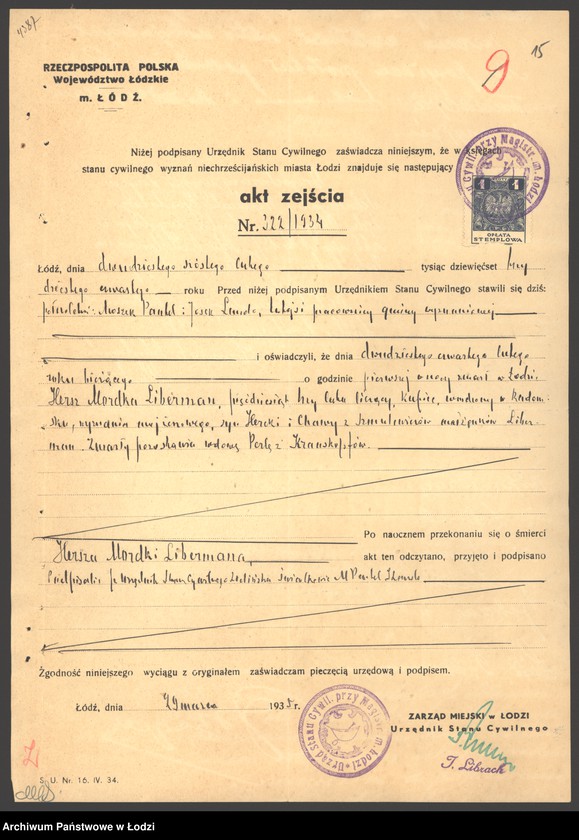 4387
15
9
RZECZPOSPOLITA POLSKA
Województwo Łódzkie
m. ŁÓDŹ.
Niżej podpisany Urzędnik Stanu Cywilnego zaświadcza niniejszym, że w księgach
stanu cywilnego wyznań niechrześcijańskich miasta Łodzi znajduje się następujący
1 1
OPŁATA
STEMPLOWA
akt zejścia
Nr. 322/1934
Łódź, dnia dwudziestego szóstego lutego tysiąc dziewięćset trzy
dziestego czwartego roku Przed niżej podpisanym Urzędnikiem Stanu Cywilnego stawili się dziś:
pełnoletni: Moszek Pantel i Josek Lando, tutejsi pracownicy gminy wyznaniowej
i oświadczyli, że dnia dwudziestego czwartego lutego
roku bieżącego o godzinie pierwszej w nocy zmarł w Łodzi
Hersz Mordka Liberman, pięćdziesiąt trzy lata liczący, kupiec, urodzony w Radom-
sku, wyznania mojżeszowego, syn Hercki i Chawy z Szmulewiczów małżonków Liber-
man. Zmarły pozostawił wdowę Perlę z Krauskopfów.
Po naocznem przekonaniu się o śmierci
Hersza Mordki Libermana, akt ten odczytano, przyjęto i podpisano
Podpisali: Urzędnik Stanu Cywilnego Świadkowie M Pantel
Zgodność niniejszego wyciągu z oryginałem zaświadczam pieczęcią urzędową i podpisem.
Łódź, dnia 29 marca 1935 r.
Urząd Stanu Cywil. przy Magistr. m. Łodzi
ZARZĄD MIEJSKI w ŁODZI
Urzędnik Stanu Cywilnego
T. Librach
S. U. Nr. 16. IV. 34.
Archiwum Państwowe w Łodzi